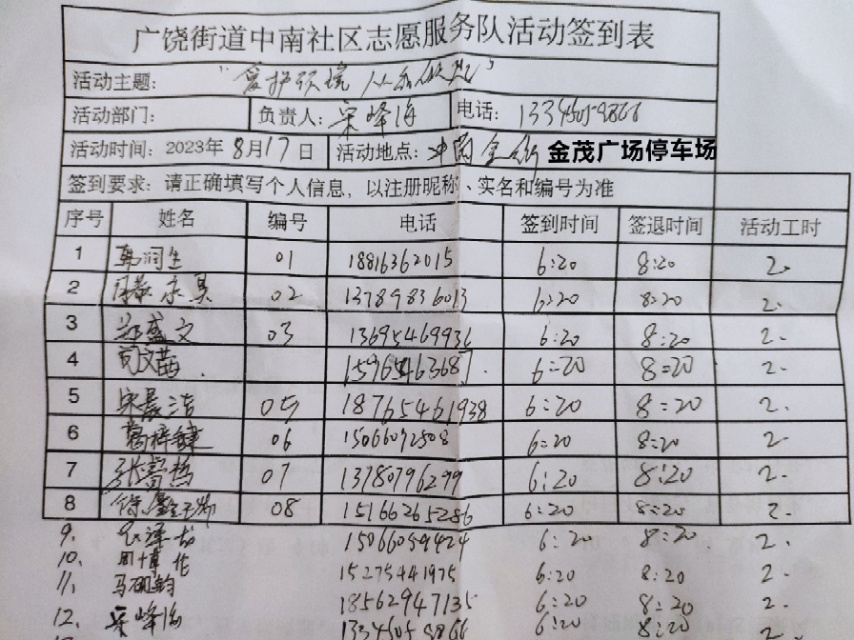 广饶街道中南社区志愿服务队活动签到表
活动主题：“爱护环境 从我做起”
活动部门： 负责人：宋峰海 电话：13346058866
活动时间：2023年8月17日 活动地点：中南金街 金茂广场停车场
签到要求：请正确填写个人信息，以注册昵称、实名和编号为准
序号 姓名 编号 电话 签到时间 签退时间 活动工时
1 韩润生 01 18816362015 6:20 8:20 2.
2 02 13789836013 6:20 8:20 2.
3 郑盛文 03 13695469936 6:20 8:20 2.
4 6:20 8:20 2.
5 宋晨洁 05 18765461938 6:20 8:20 2.
6 葛梓健 06 15066092508 6:20 8:20 2.
7 07 13780796299 6:20 8:20 2.
8 08 15166265286 6:20 8:20 2.
9. 15066059424 6:20 8:20 2.
10. 周博
11. 马砚钧 15275441975 6:20 8:20 2.
18562947135 6:20 8:20 2.
12. 宋峰海 13346058866 6:20 8:20 2.